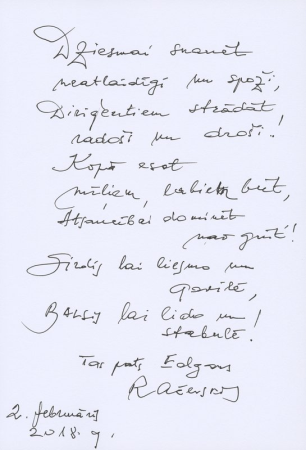 Dziesmai skanēt
neatlaidīgi un spoži,
Diriģentiem strādāt
radoši un droši!
Kopā esot
mīliem, labiem būt,
Atsaucībai dominēt
nav grūt!
Sirdīs lai liesmo un
gavilē,
BALSIS lai lido un
stabulē!
Tas pats Edgars
RAČEVSKIS
2. februāris
2018. g.